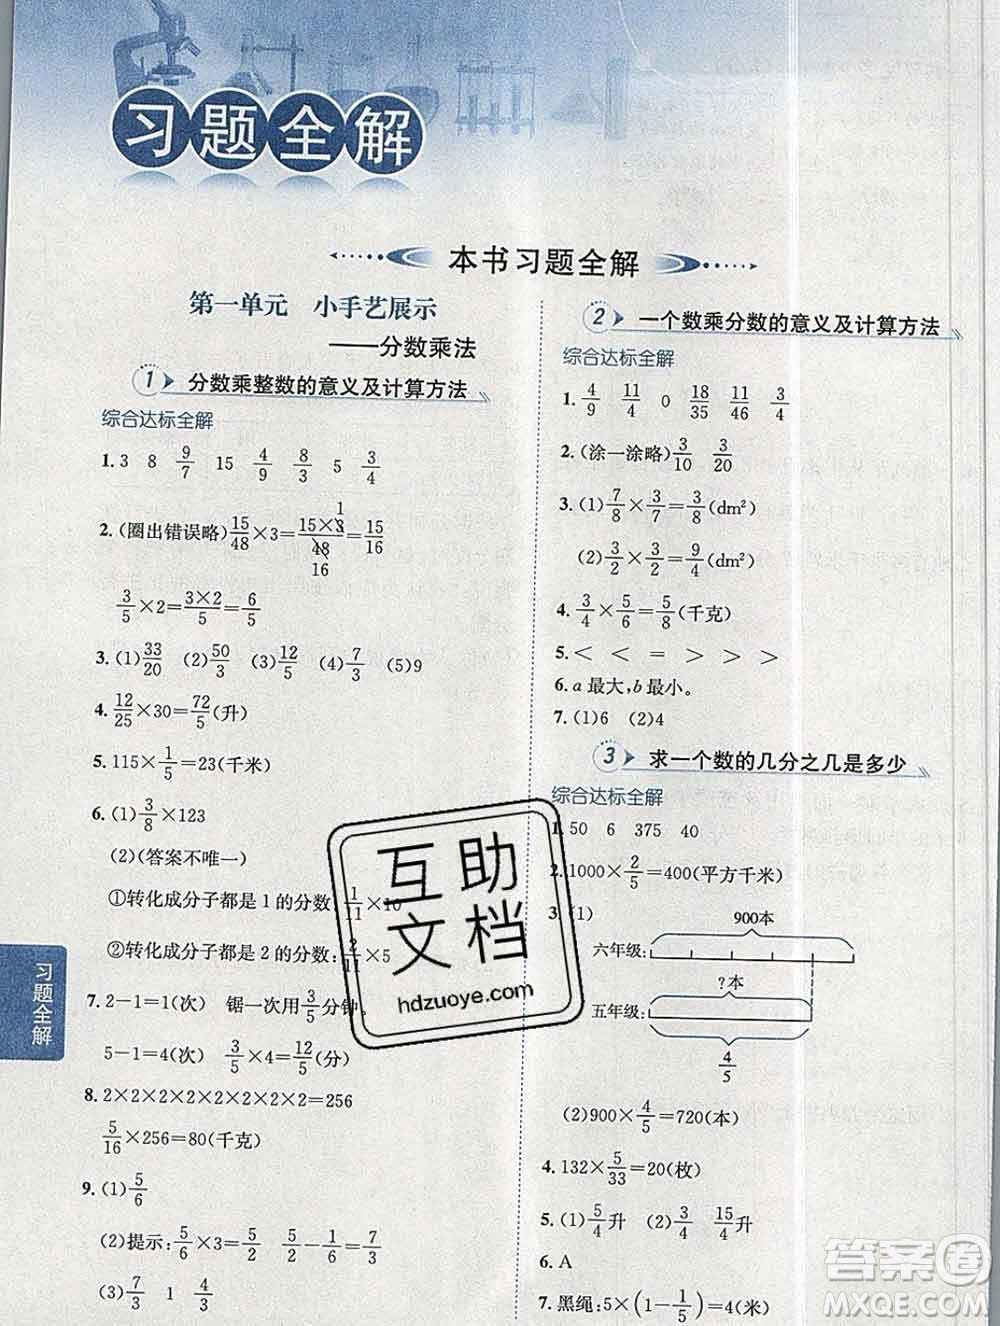 习题全解
本书习题全解
第一单元 小手艺展示
——分数乘法
1 分数乘整数的意义及计算方法
综合达标全解
1. 3 8 9/7 15 4/9 8/3 5 3/4
2. (圈出错误略) 15/48×3=15×3/48=15/16
1
16
3/5×2=3×2/5=6/5
3. (1)33/20 (2)50/3 (3)12/5 (4)7/3 (5)9
4. 12/25×30=72/5(升)
5. 115×1/5=23(千米)
6. (1)3/8×123
(2)(答案不唯一)
①转化成分子都是1的分数:1/11×10
②转化成分子都是2的分数:2/11×5
7. 2-1=1(次) 锯一次用3/5分钟,
5-1=4(次) 3/5×4=12/5(分)
8. 2×2×2×2×2×2×2×2=256
5/16×256=80(千克)
9. (1)5/6
(2)提示:5/6×3=5/2 5/2-1/6=7/3
(3)7/3 1 8/3
2 一个数乘分数的意义及计算方法
综合达标全解
1. 4/9 11/4 0 18/35 11/46 3/4
2. (涂一涂略)3/10 3/20
3. (1)7/8×3/7=3/8(dm²)
(2)3/2×3/2=9/4(dm²)
4. 3/4×5/6=5/8(千克)
5. < < = > > >
6. a最大,b最小。
7. (1)6 (2)4
3 求一个数的几分之几是多少
综合达标全解
1. 50 6 375 40
2. 1000×2/5=400(平方千米)
3. (1)
900本
六年级:
?本
五年级:
4/5
(2)900×4/5=720(本)
4. 132×5/33=20(枚)
5. (1)5/4升 (2)3/4 15/4升
6. A
7. 黑绳:5×(1-1/5)=4(米)
习题全解
互助
文档
hdzuoye.com
答案圈
MXQE.COM